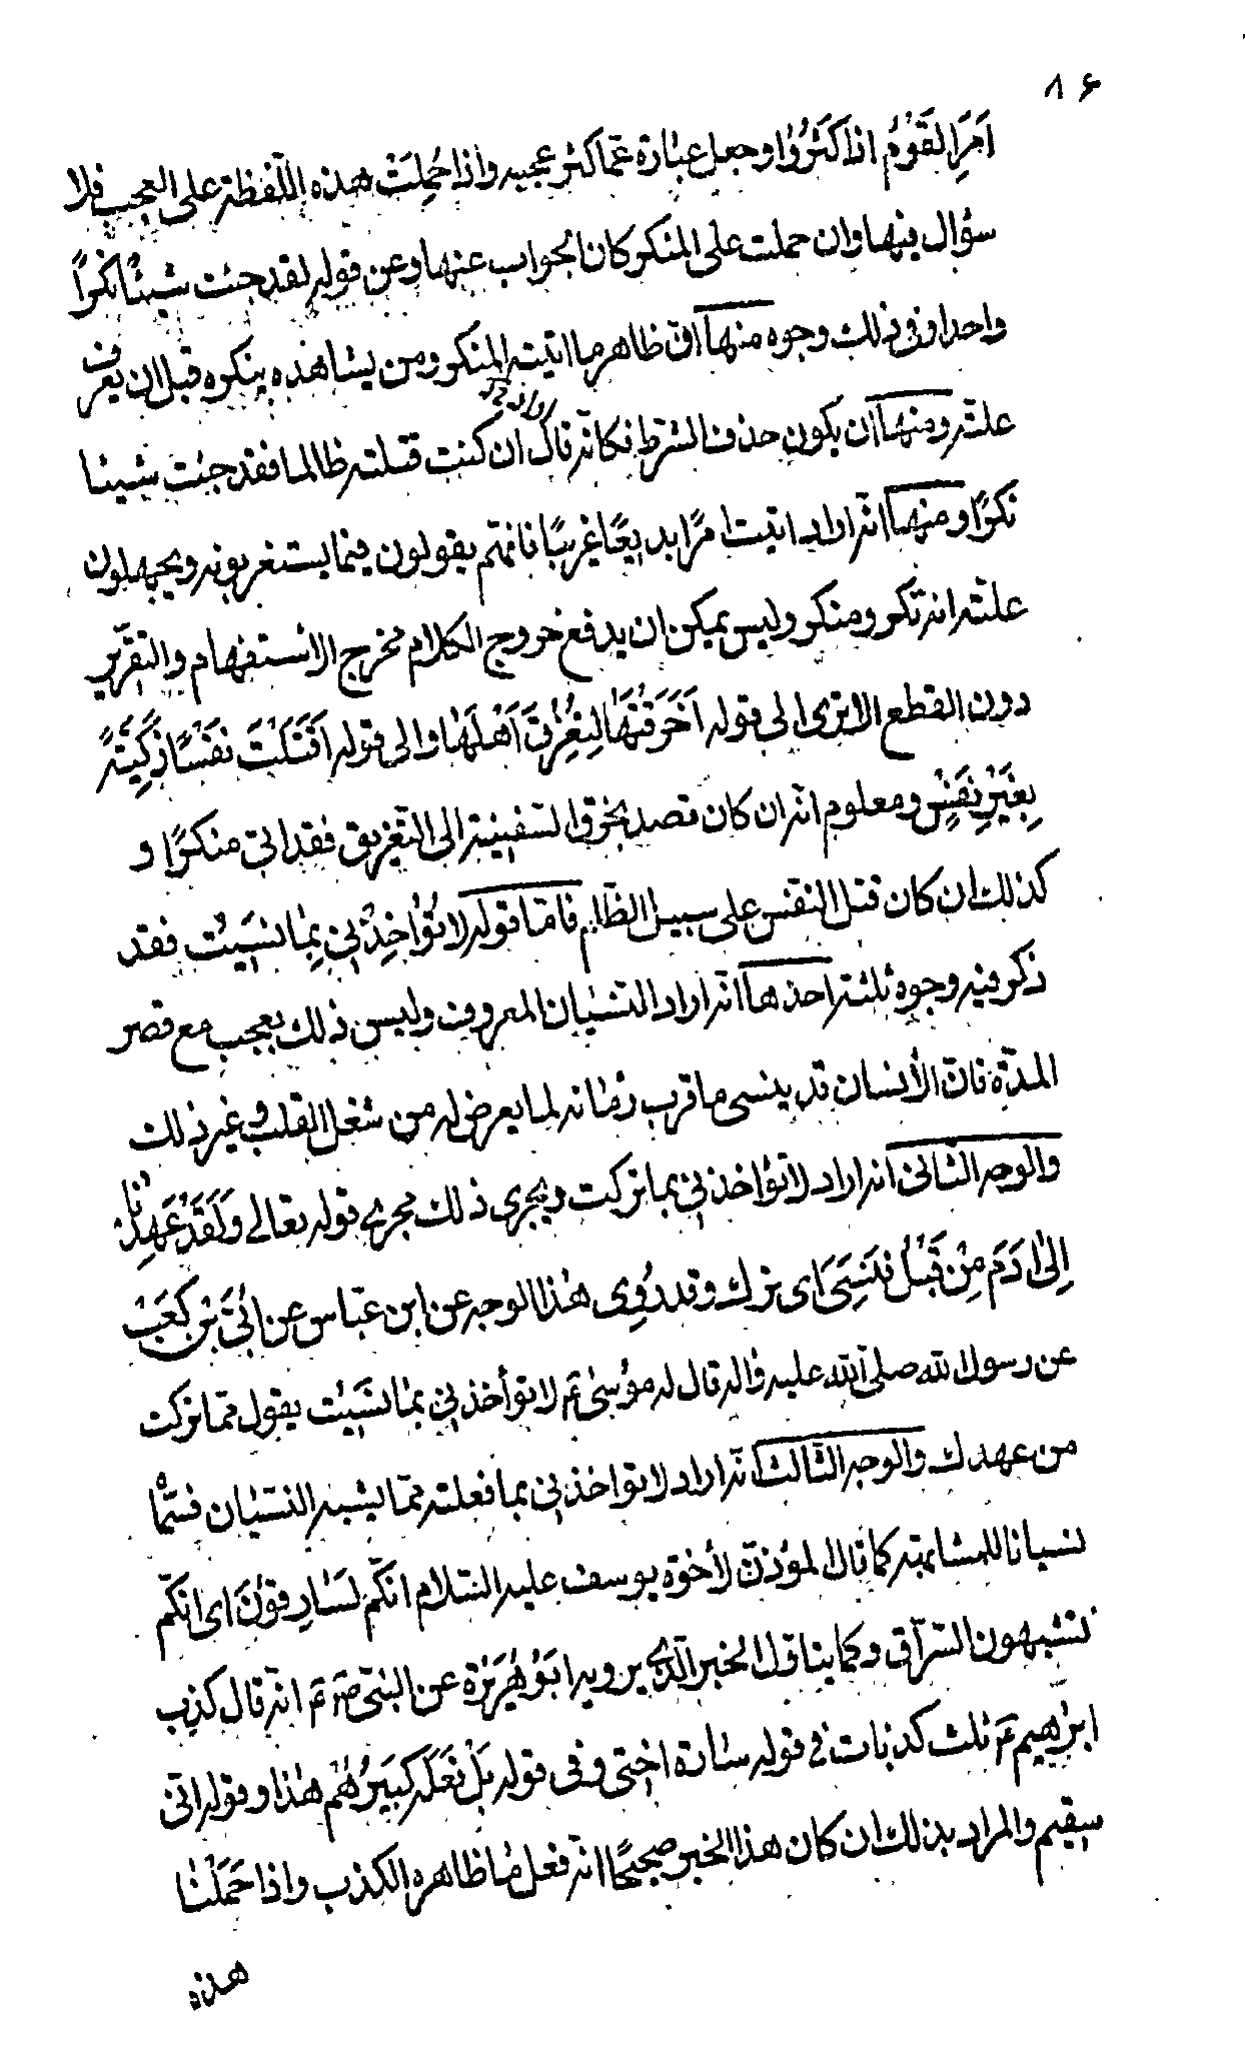 ۸۶
اَمِرَ القَوْمُ اذا كَثُرُوا وجعل عبٰارة عمّا كثر عجبه واذا حُمِلَتْ هذه اللّفظة على العجب فلا
سؤال فيها وان حملت على المنكر كان الجواب عنها وعن قوله لقد جئت شيئًا نُكْرًا
واحدا وفى ذلك وجوه منها انّ ظاهر ما اتيته المنكر ومن يشاهده ينكره قبل ان يعرف
علّته ومنها ان يكون حذف الشرط فكانّه قال ان كنت قتلته ظالما فقد جئت شيئا
نكرًا ومنها انّه اراد اتيت امرًا بديعًا غريبًا فانّهم يقولون فيما يستغربونه ويجهلون
علّته انه نكر ومنكر وليس يمكن ان يدفع خروج الكلام مخرج الاستفهام والتقرير
دون القطع الا ترى الى قوله اَخَرَقْتَهٰا لِتُغْرِقَ اَهْلَهٰا والى قوله اَقَتَلْتَ نَفْسًا زَكِيَّةً
بِغَيْرِ نَفْسٍ ومعلوم انّه ان كان قصد بخرق السّفينة الى التّغريق فقد اتى منكرًا و
كذلك ان كان قتل النّفس على سبيل الظّلم فامّا قوله لا تُؤٰاخِذْنِي بِمٰا نَسِيتُ فقد
ذكر فيه وجوه ثلثة احدها انّه اراد النّسْيٰان المعروف وليس ذلك بعجب مع قصر
المدّة فانّ الأنسان قد ينسى ما قرب زمٰانه لما يعرض له من شغل القلب وغير ذلك
والوجه الثّانى انه اراد لا تؤاخذنى بما تركت ويجرى ذلك مجرى قوله تعالى وَلَقَدْ عَهِدْنٰا
اِلىٰ اٰدَمَ مِنْ قَبْلُ فَنَسِىَ اى ترك وقد رُوِى هٰذا الوجه عن ابن عبّاس عن اُبَىّ بْنِ كَعْبٍ
عن رسول الله صلى اللّه عليه واٰله قال قال له مؤسىٰ ع لا تؤأخذنى بمٰا نَسَيْت يقول ممّا تركت
من عهدك والوجه الثّالث انّه اراد لا تؤاخذنى بما فعلته ممّا يشبه النّسيٰان فسمّٰاه
نسيانا للمشابهة كما قال المؤذن لأخوة يوسف عليه السّلام انّكم لَسٰارِقوُنَ اى انّكم
تشبهون السّرّاق وكما يتاوّل الخبر الّذى يرويه ابَوُ هُرَيْرَة عن النبّى ص ع انّه قال كذب
ابرٰهيم ع ثلث كذبات فى قوله سٰارة اختى وفى قوله بَلْ فَعَلَهُ كَبيرُهُمْ هٰذا وقوله انّى
سقيم والمراد بذلك ان كان هذا الخبر صحيحًا انّه فعل مٰا ظاهره الكذب واذا حَمَلْنٰا
هذه